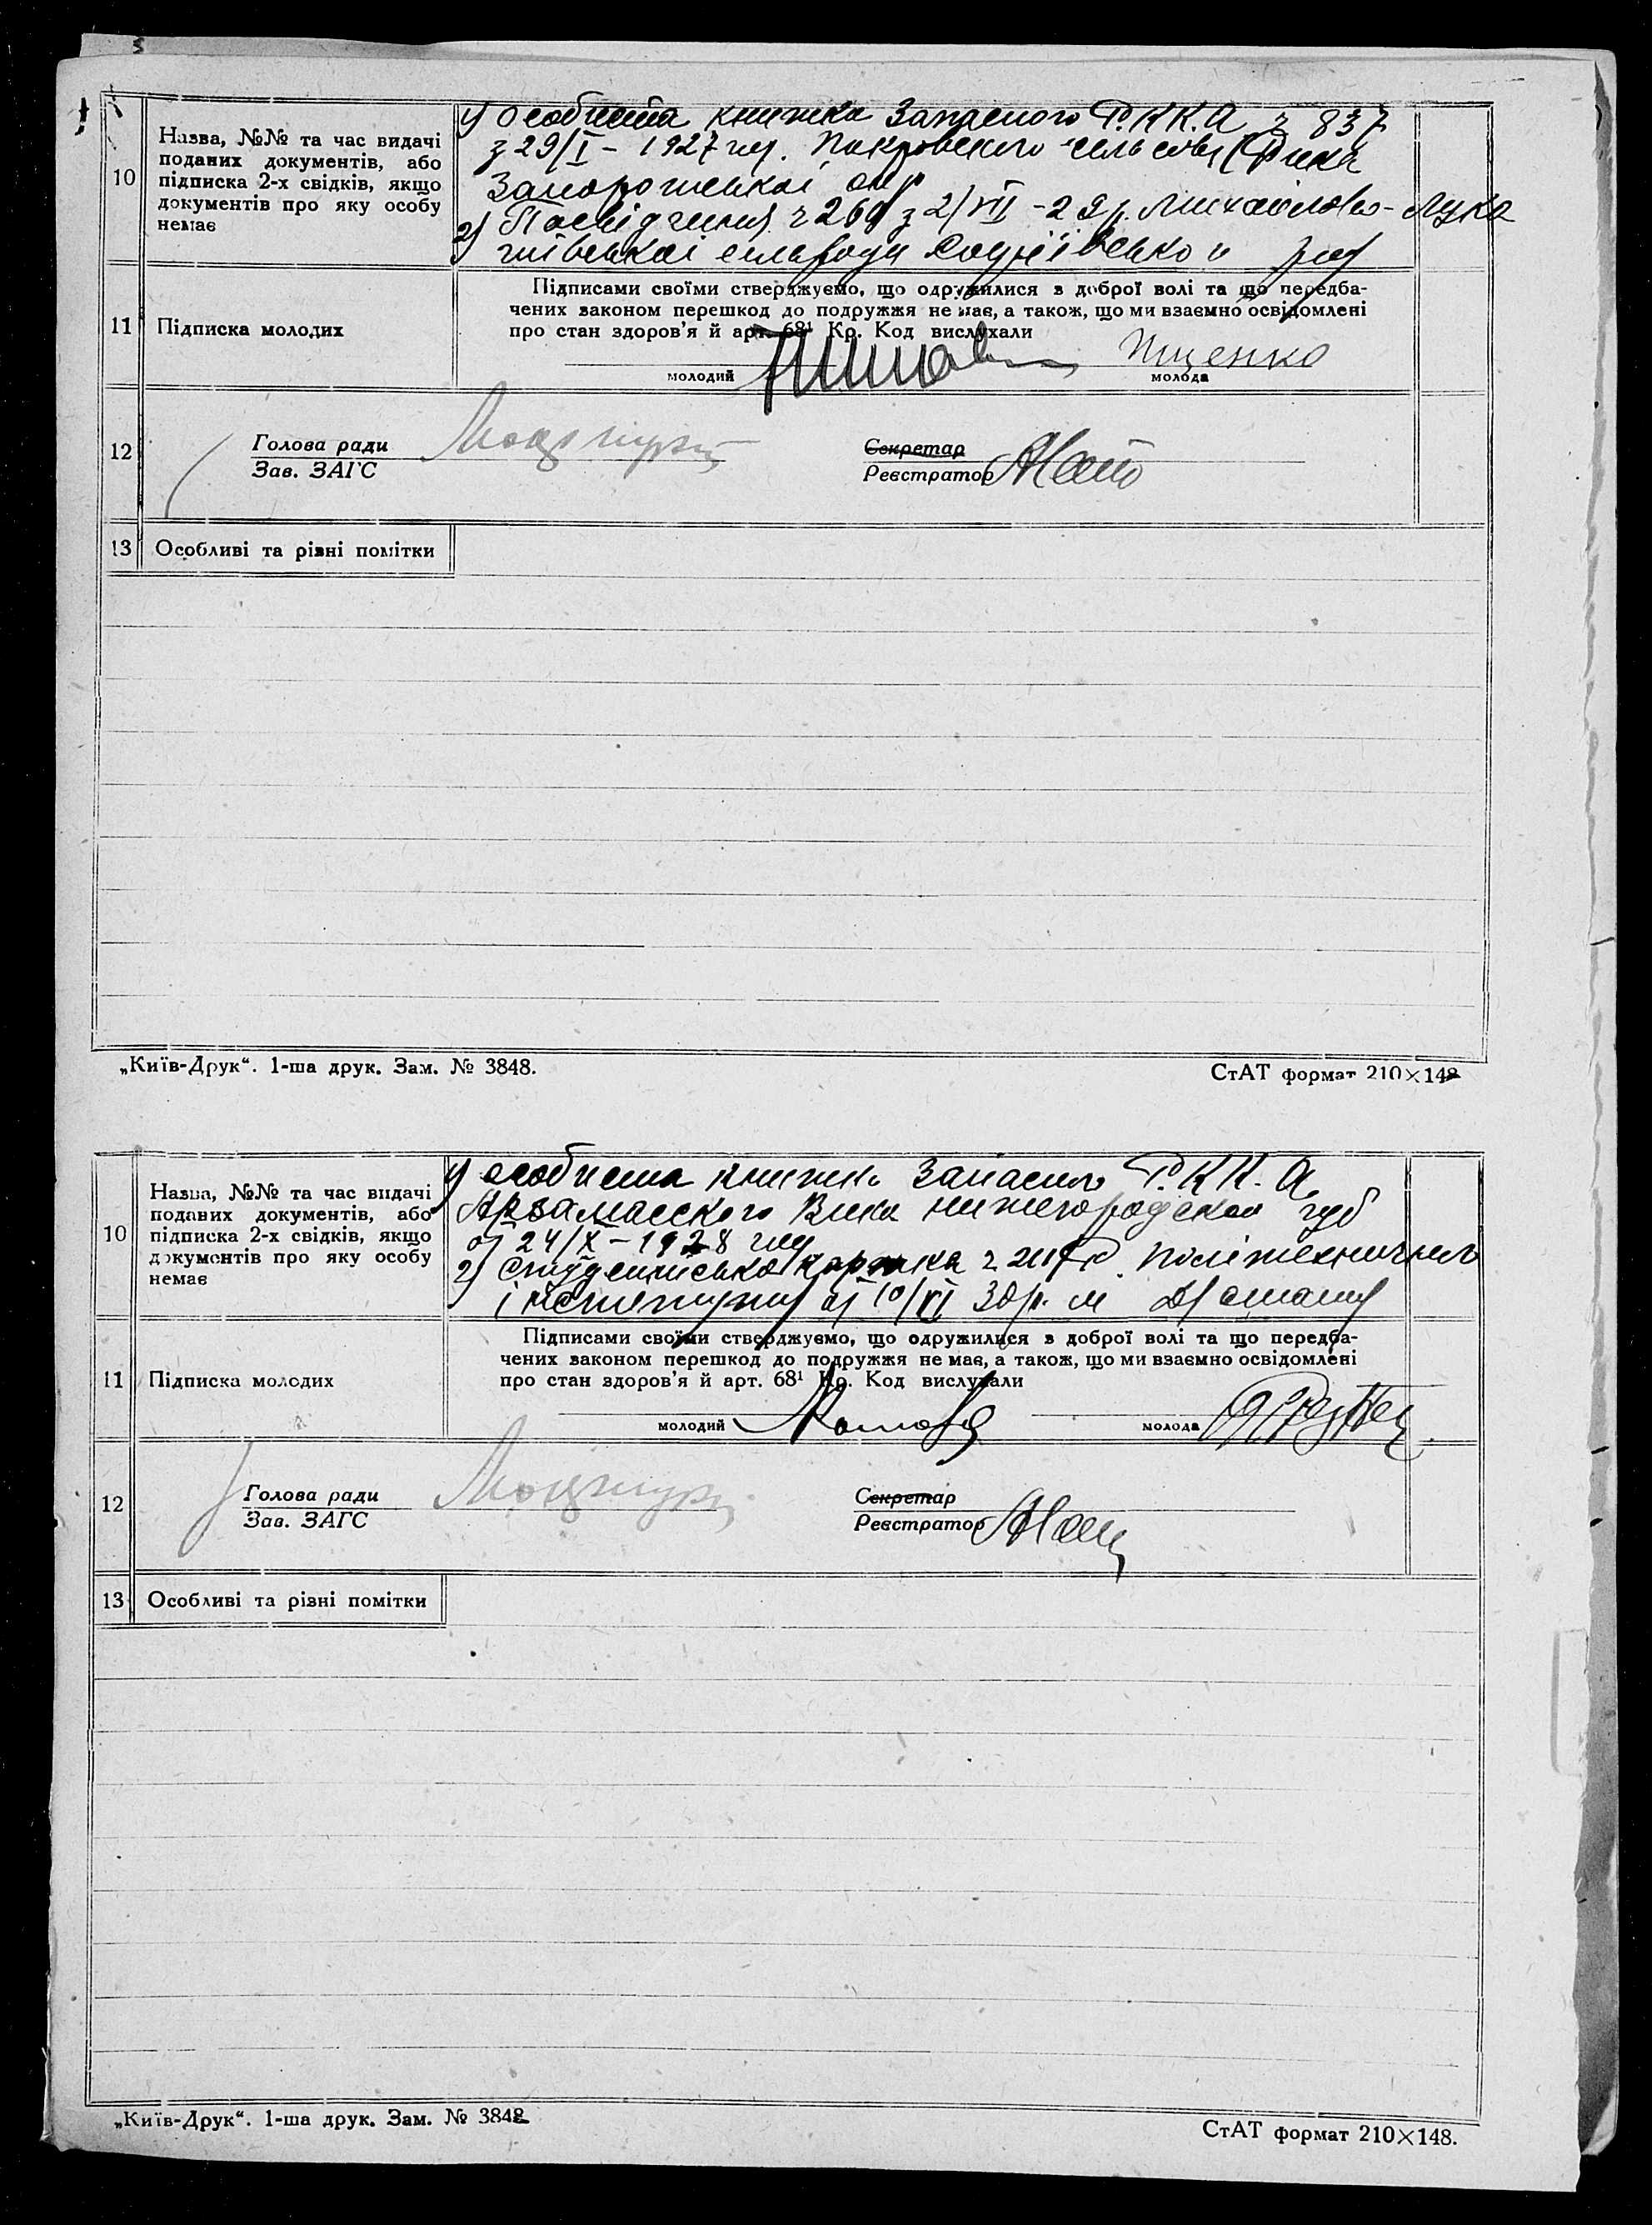 10
Назва, №№ та час видачі
поданих документів, або
підписка 2-х свідків, якщо
документів про яку особу
немає
1) Особиста книжка Запасного Р.К.К.А ч 837
з 29/I - 1927 Покровского сельсовету
Запорожськой окр
2) Посвідчення ч 260 з 2/VII - 29 р. Михайлово-Лука
шівськкої сельради
11
Підписка молодих
Підписами своїми стверджуємо, що одружилися з доброї волі та що передба-
чених законом перешкод до подружжя немає, а також, що ми взаємно освідомлені
про стан здоров'я й арт. 68¹ Кр. Код вислухали
молодий
Іщенко
молода
12
Голова ради
Зав. ЗАГС
Секретар
Реєстратор
13
Особливі та різні помітки
„Київ-Друк“. 1-ша друк. Зам. № 3848.
СтАТ формат 210×148
10
Назва, №№ та час видачі
поданих документів, або
підписка 2-х свідків, якщо
документів про яку особу
немає
1) особиста книжка Запасного Р.К.К.А.
Арзамасского Вика нижегородской губ
від 24/X - 1928
2) Студентська картка ч Політехничного
інституту від 10/VI 30 р. м
11
Підписка молодих
Підписами своїми стверджуємо, що одружилися з доброї волі та що передба-
чених законом перешкод до подружжя немає, а також, що ми взаємно освідомлені
про стан здоров'я й арт. 68¹ Кр. Код вислухали
молодий
молода
12
Голова ради
Зав. ЗАГС
Секретар
Реєстратор
13
Особливі та різні помітки
„Київ-Друк“. 1-ша друк. Зам. № 3848
СтАТ формат 210×148.